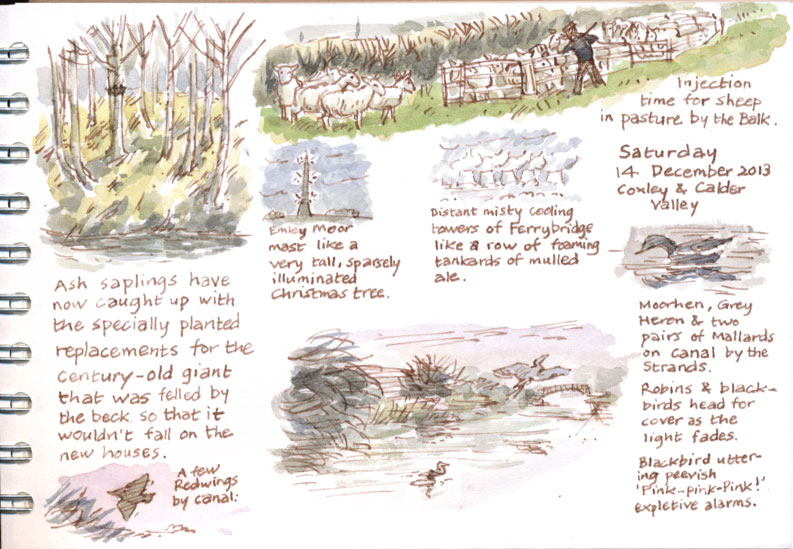 Injection
time for sheep
in pasture by the Balk.
Saturday
14 December 2013
Coxley & Calder
Valley
Emley Moor
mast like a
very tall, sparsely
illuminated
Christmas tree.
Distant misty cooling
towers of Ferrybridge
like a row of foaming
tankards of mulled
ale.
Ash saplings have
now caught up with
the specially planted
replacements for the
century-old giant
that was felled by
the beck so that it
wouldn't fall on the
new houses.
A few
Redwings
by canal.
Moorhen, Grey
Heron & two
pairs of Mallards
on canal by the
Strands.
Robins & black-
birds head for
cover as the
light fades.
Blackbird utter-
ing peevish
'Pink-pink-Pink!'
expletive alarms.